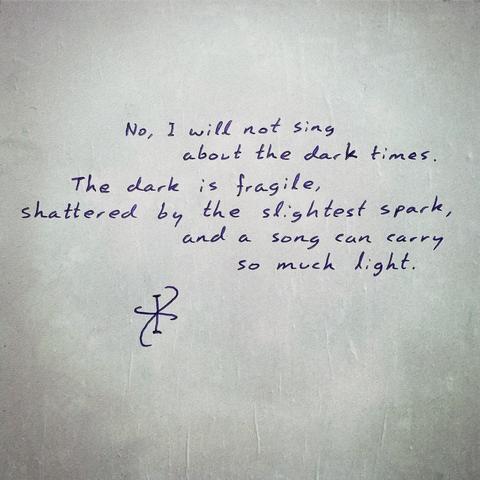 No, I will not sing
about the dark times.
The dark is fragile,
shattered by the slightest spark,
and a song can carry
so much light.